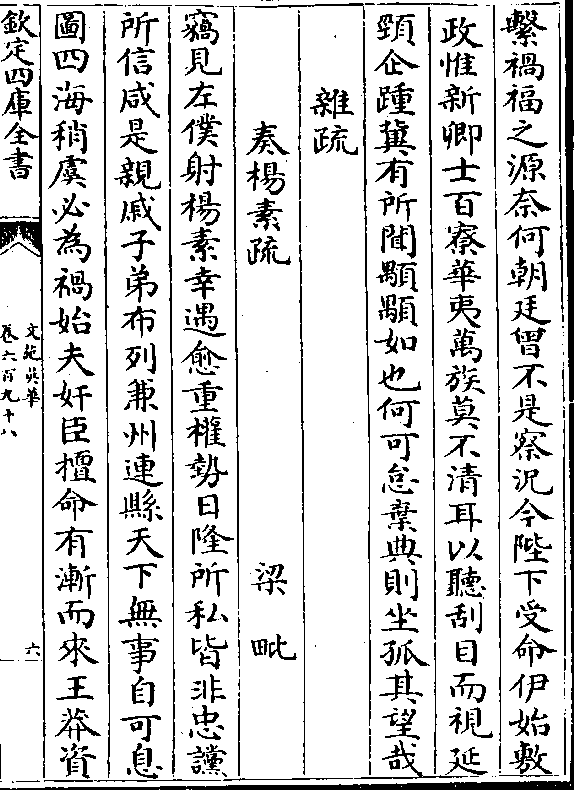 繫禍福之源奈何朝廷曾不是察況今陛下受命伊始敷
政惟新卿士百寮華夷萬族莫不清耳以聽刮目而視延
頸企踵冀有所聞顒顒如也何可怠棄典則坐孤其望哉
雜疏
奏楊素疏 梁毗
竊見左僕射楊素幸遇愈重權勢日隆所私皆非忠讜
所信咸是親戚子弟布列兼州連縣天下無事自可息
圖四海稍虞必為禍始夫奸臣擅命有漸而來王莽資
欽定四庫全書
文苑英華
卷六百九十八
六